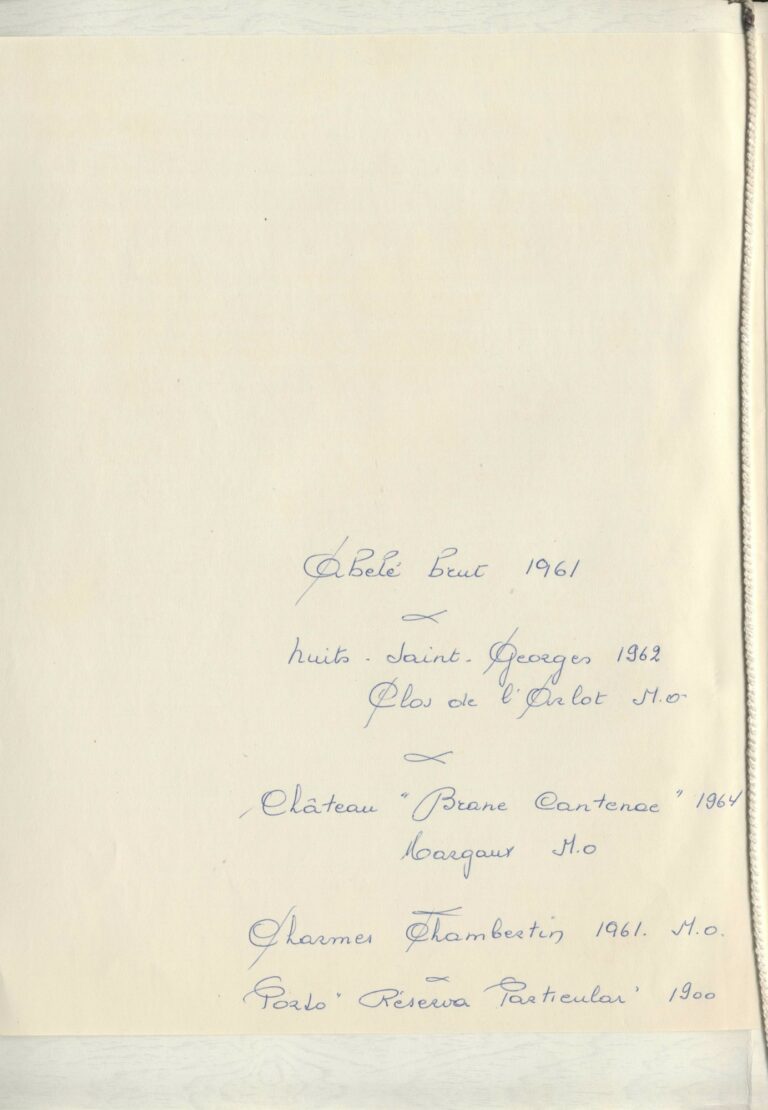 Abelé brut 1961
Nuits - Saint - Georges 1962
Clos de l'Arlot M.o
Château "Brane Cantenac" 1964
Margaux M.o
Charmes Chambertin 1961. M.o.
Porto "Réserva Particular" 1900